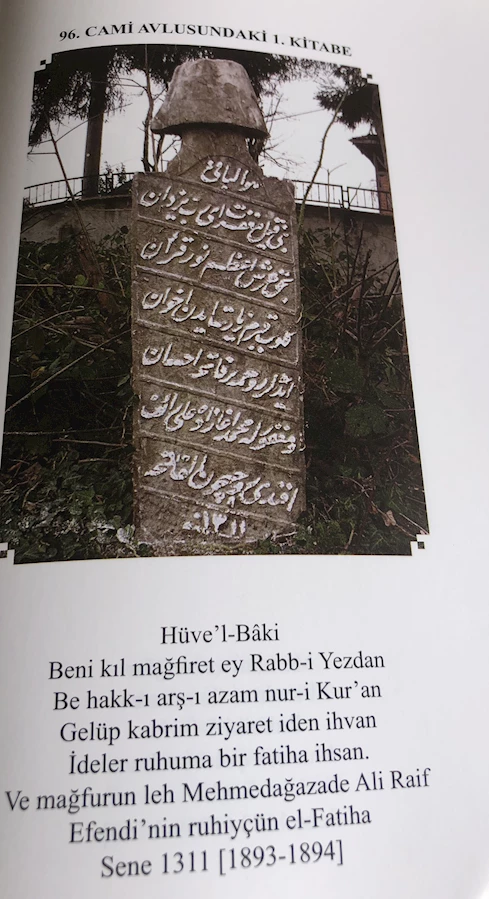 96. CAMİ AVLUSUNDAKİ 1. KİTABE
هو الباقی
بنی قیل مغفرت ای رب یزدان
بحق عرش اعظم نور قرآن
کلوب قبرم زیارت ایدن اخوان
ایدلر روحمه بر فاتحه احسان
و مغفور له محمد اغازاده علی رائف
افندی روحیچون الفاتحه
سنه ١٣١١
Hüve’l-Bâki
Beni kıl mağfiret ey Rabb-i Yezdan
Be hakk-ı arş-ı azam nur-i Kur’an
Gelüp kabrim ziyaret iden ihvan
İdeler ruhuma bir fatiha ihsan.
Ve mağfurun leh Mehmedağazade Ali Raif
Efendi’nin ruhiyçün el-Fatiha
Sene 1311 [1893-1894]